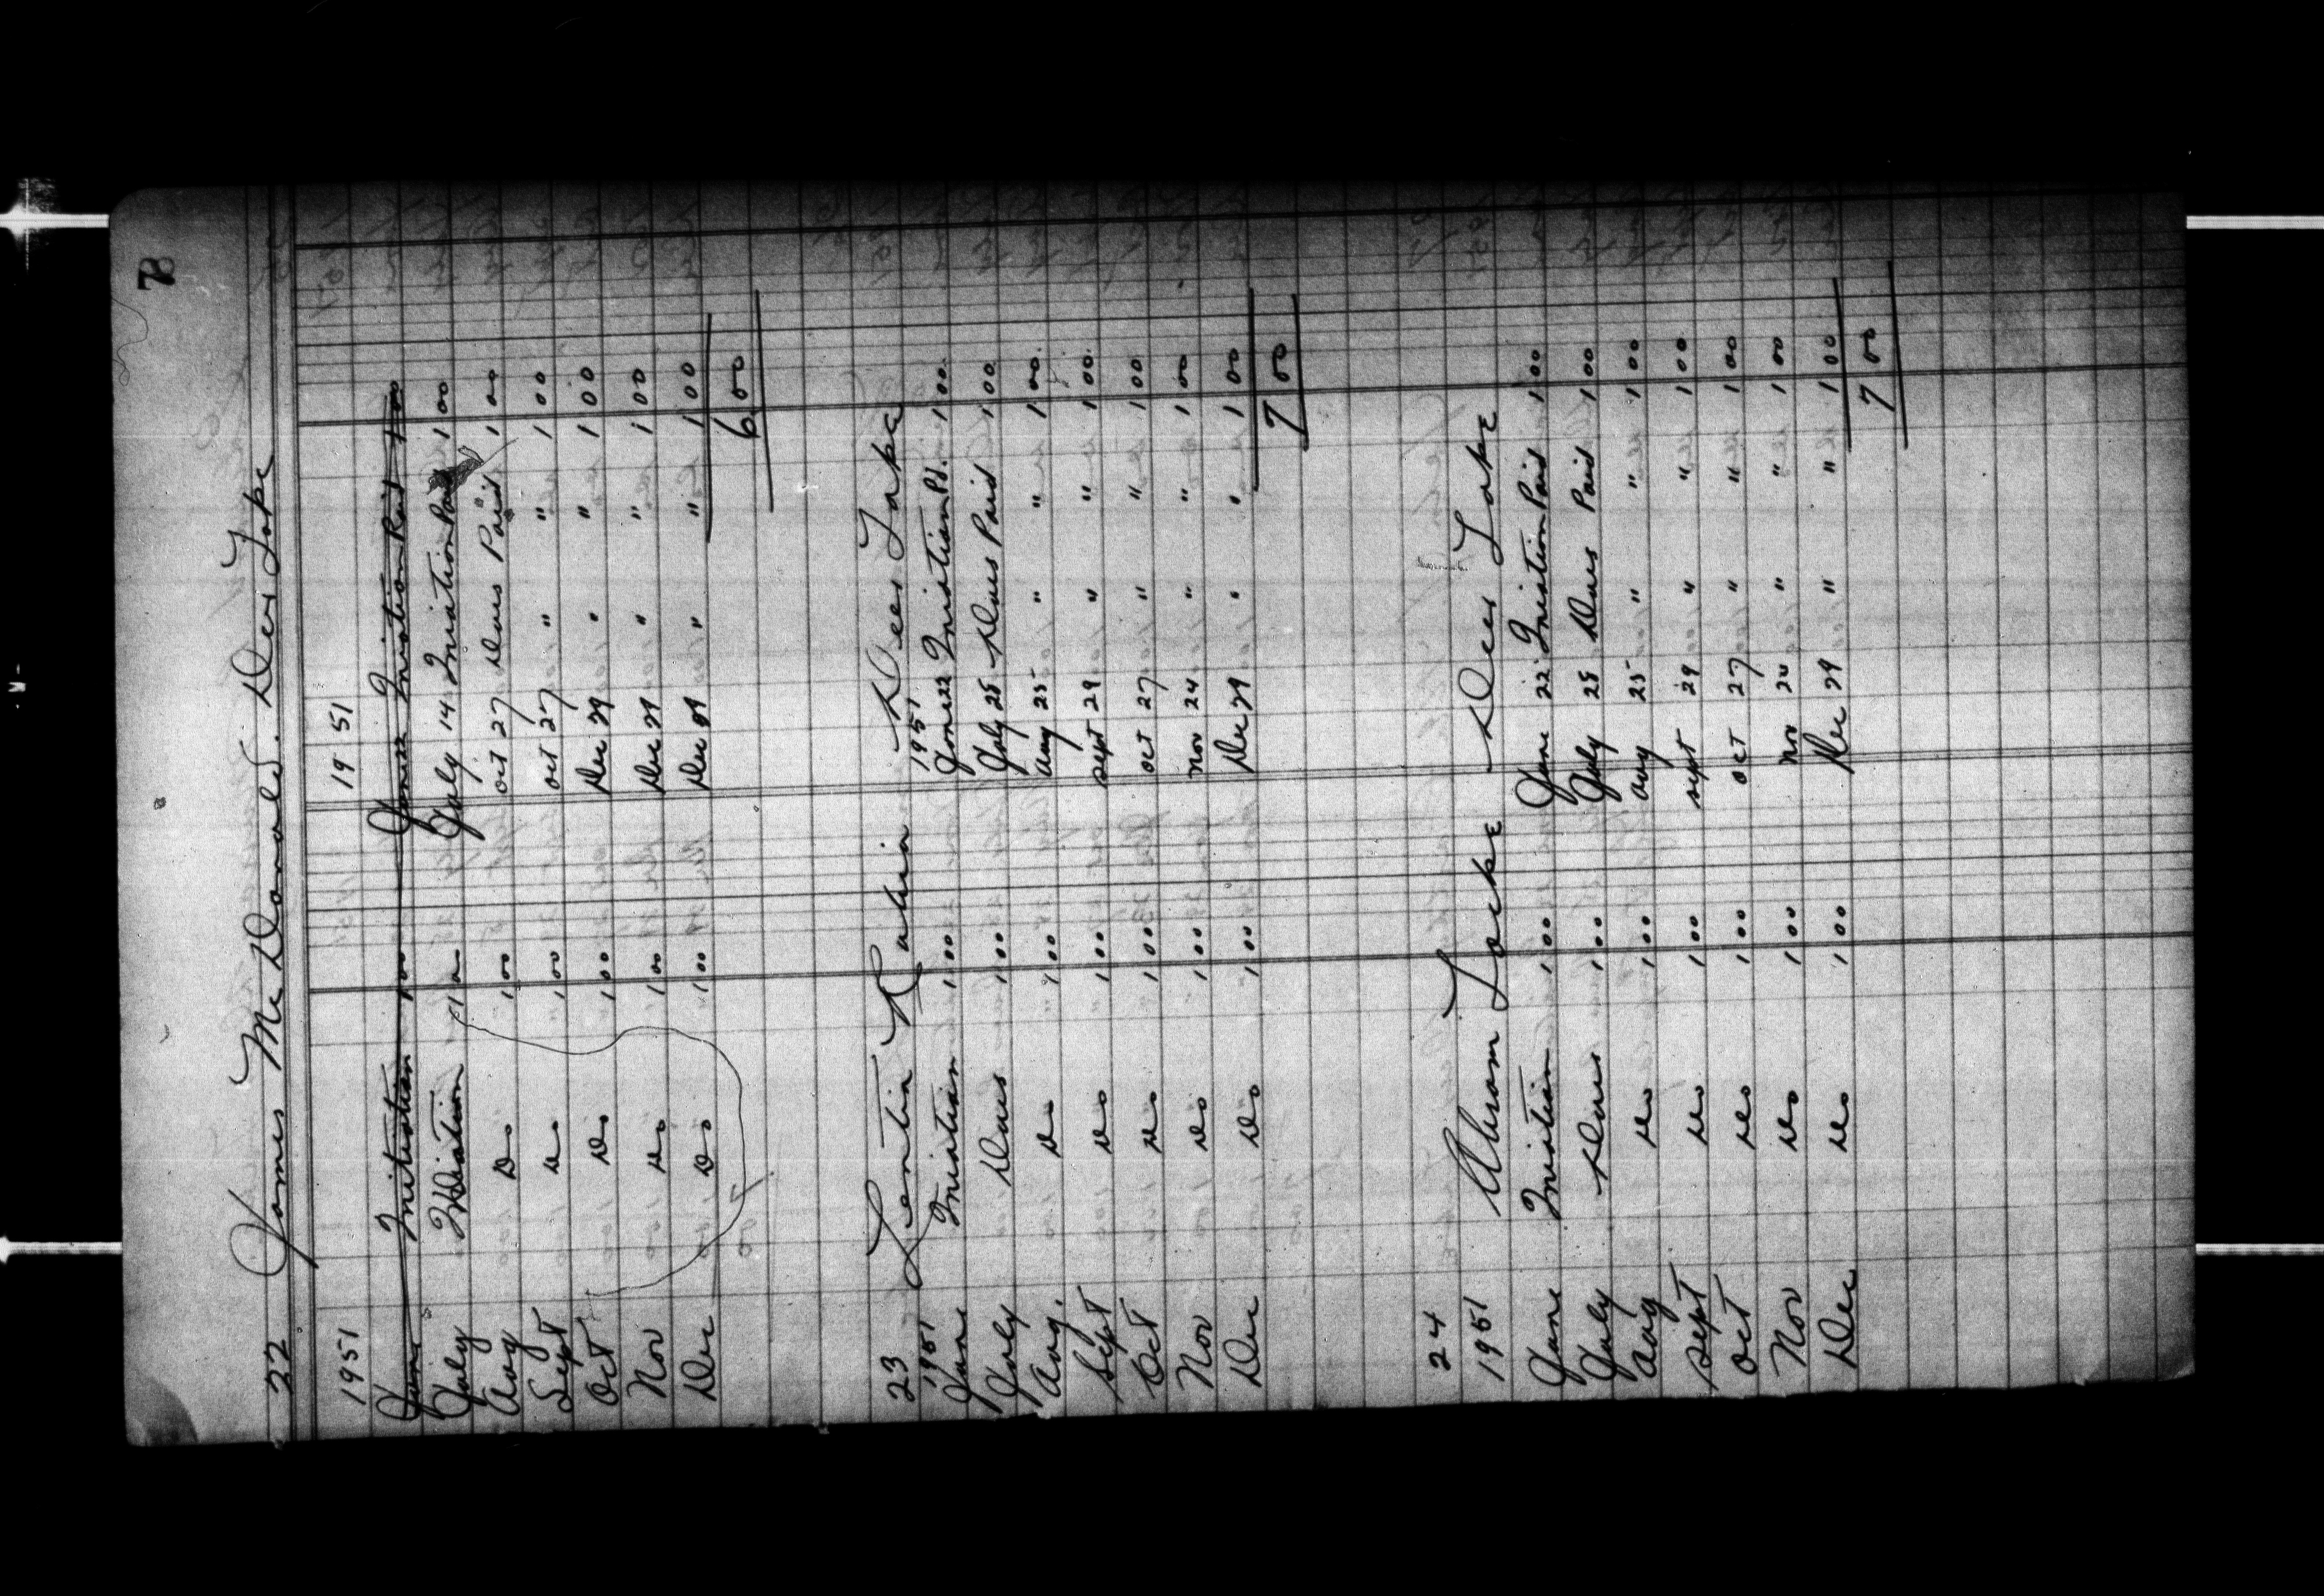 78
22 James McDonald. Deer Lake
1951 19 51
June Initiation 1 00 June 22 Iniation Paid 1 00
July Iniation 1 00 July 14 Iniation Paid 1 00
Aug Do 1 00 Oct 27 Dues Paid 1 00
Sept Do 1 00 Oct 27 " " 1 00
Oct Do 1 00 Dec 29 " " 1 00
Nov Do 1 00 Dec 29 " " 1 00
Dec Do 1 00 Dec 29 " " 1 00
6 00
23 Deer Lake
1951 1951
June Iniation 1 00 June 22 Iniation Pd. 1 00
July Dues 1 00 July 28 Dues Paid 1 00
Aug. Do 1 00 Aug 25 " " 1 00
Sept Do 1 00 Sept 29 " " 1 00
Oct Do 1 00 Oct 27 " " 1 00
Nov Do 1 00 Nov 24 " " 1 00
Dec Do 1 00 Dec 29 " " 1 00
7 00
24
1951 Abram Locke Deer Lake
June Iniation 1 00 June 22 Iniation Paid 1 00
July Dues 1 00 July 28 Dues Paid 1 00
Aug Do 1 00 Aug 25 " " 1 00
Sept Do 1 00 Sept 29 " " 1 00
Oct Do 1 00 Oct 27 " " 1 00
Nov Do 1 00 Nov 24 " " 1 00
Dec Do 1 00 Dec 29 " " 1 00
7 00